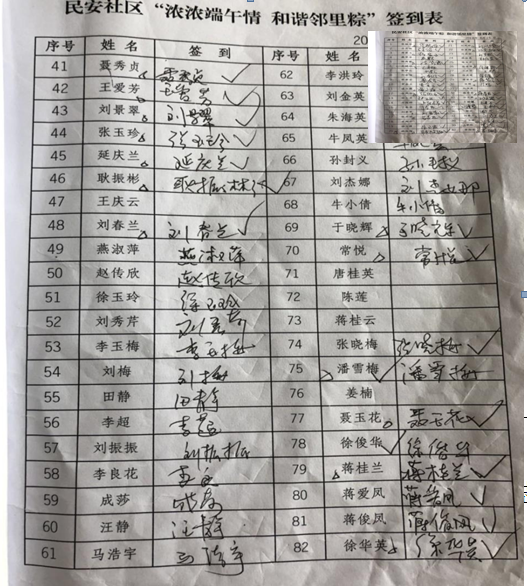 民安社区“浓浓端午情 和谐邻里粽”签到表
20
序号 姓名 签到 序号 姓名
41 聂秀贞 聂秀贞 62 李洪玲
42 王爱芳 63 刘金英
43 刘景翠 刘景翠 64 朱海英
44 张玉珍 张玉珍 65 牛凤英
45 延庆兰 延庆兰 66 孙封义 孙封义
46 耿振彬 耿振彬 67 刘杰娜 刘杰娜
47 王庆云 68 牛小倩 牛小倩
48 刘春兰 刘春兰 69 于晓辉 于晓辉
49 燕淑萍 燕淑萍 70 常悦 常悦
50 赵传欣 赵传欣 71 唐桂英
51 徐玉玲 徐玉玲 72 陈莲
52 刘秀芹 73 蒋桂云
53 李玉梅 李玉梅 74 张晓梅 张晓梅
54 刘梅 刘梅 75 潘雪梅 潘雪梅
55 田静 田静 76 姜楠
56 李超 李超 77 聂玉花 聂玉花
57 刘振振 刘振振 78 徐俊华 徐俊华
58 李良花 79 蒋桂兰 蒋桂兰
59 成莎 80 蒋爱凤
60 汪静 汪静 81 蒋俊凤 蒋俊凤
61 马浩宇 马浩宇 82 徐华英